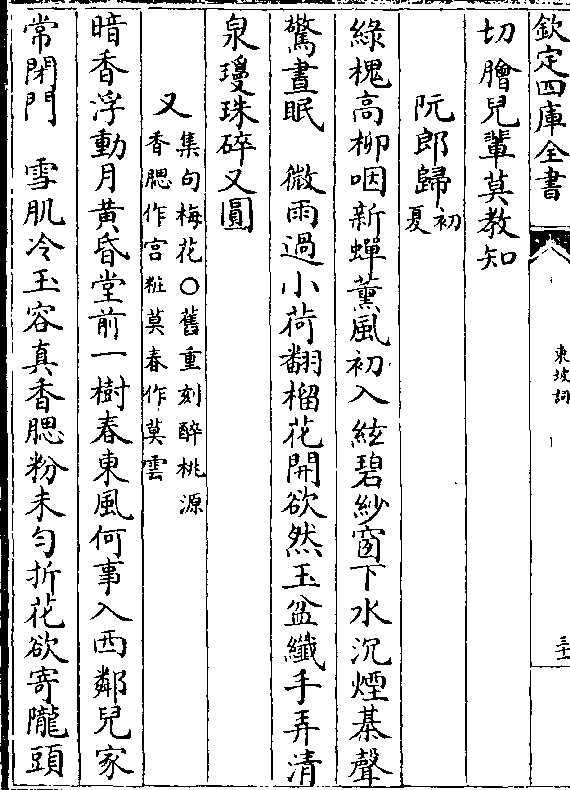 欽定四庫全書
東坡詞
三十一
切膾兒輩莫教知
阮郎歸初夏
綠槐高柳咽新蟬薰風初入絃碧紗窗下水沉煙棊聲
驚晝眠　微雨過小荷翻榴花開欲然玉盆纖手弄清
泉瓊珠碎又圓
又集句梅花○舊重刻醉桃源
香腮作宫粧莫春作莫雲
暗香浮動月黄昏堂前一樹春東風何事入西鄰兒家
常閉門　雪肌冷玉容真香腮粉未勻折花欲寄隴頭